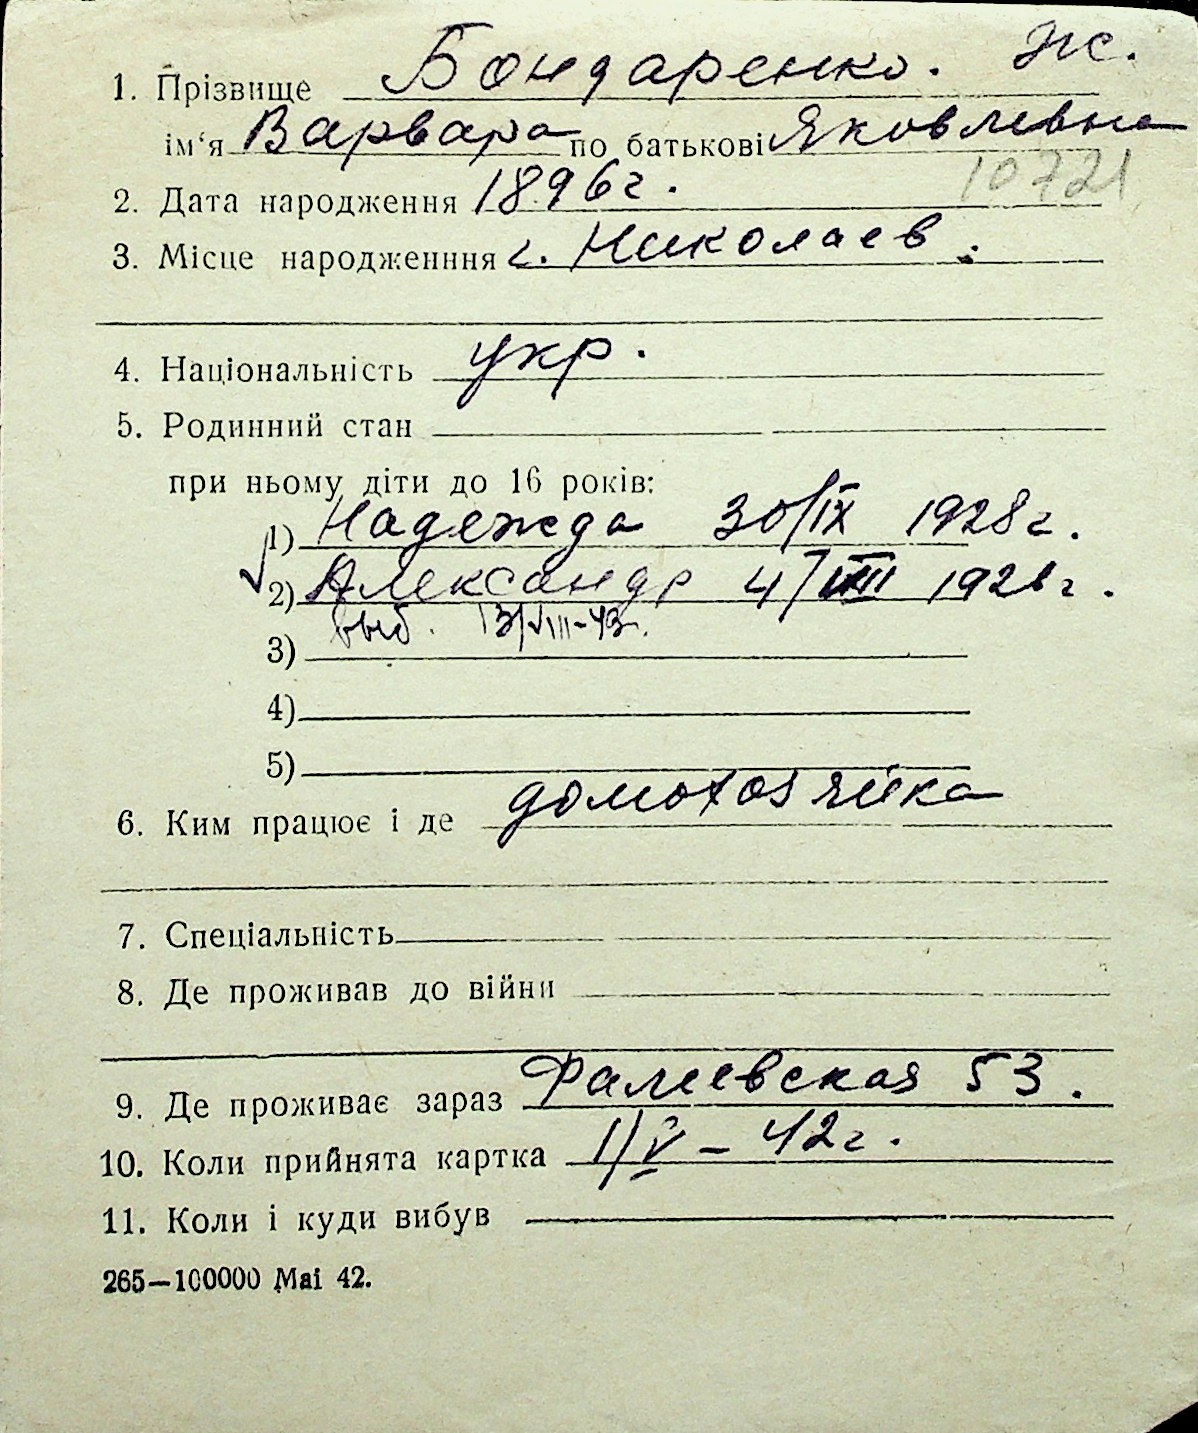 1. Прізвище Бондаренко. Ж.
ім'я Варвара по батькові Яковлевна
10721
2. Дата народження 1896 г.
3. Місце народженння г. Николаев.
4. Національність укр.
5. Родинний стан
при ньому діти до 16 років:
1) Надежда 30/IX 1928 г.
√ 2) Александр 4/VIII 192 г.
выб. 13/VIII-43.
3)
4)
5)
6. Ким працює і де домохозяйка
7. Спеціальність
8. Де проживав до війни
9. Де проживає зараз Фалеевская 53.
10. Коли прийнята картка 1/V – 42 г.
11. Коли і куди вибув
265—100000 Mai 42.